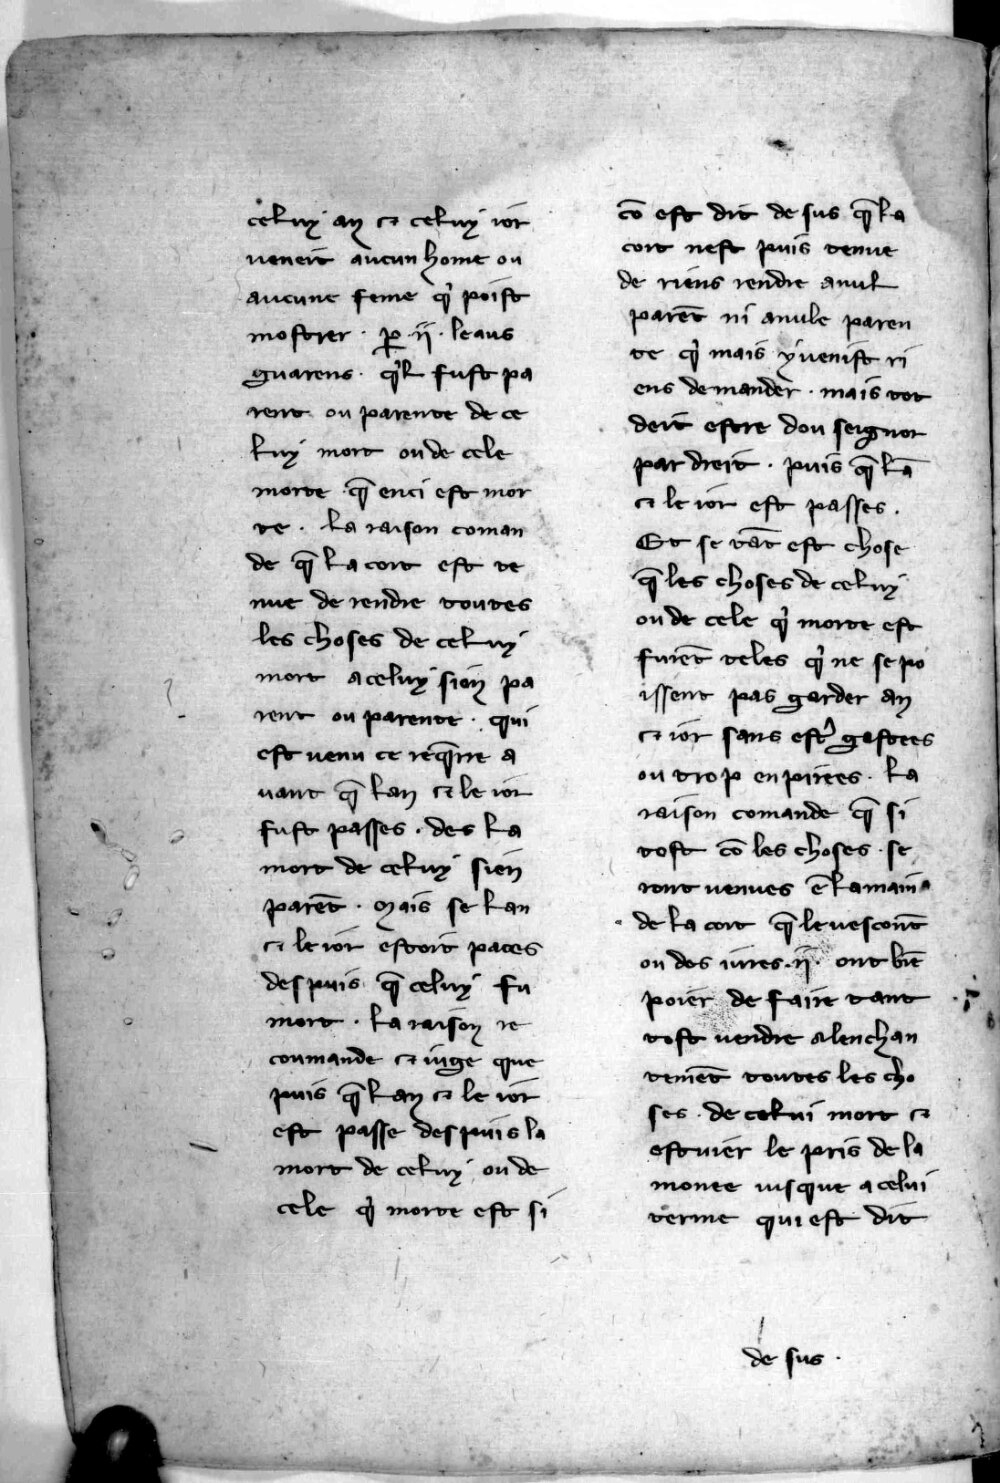 celuy an ⁊ celuy ior
veneit aucun home ou
aucune feme qͥ poist
mostrer · ꝑ · ij · leaus
guarens · qͥl fust pa
rent ou parente de ce
luy mort ou de cele
morte · q̄ enci est mor
te · la raison coman
de q̄ la cort est te
nue de rendre toutes
les choses de celuy
mort a celuy sien pa
rent ou parente · qui
est venu ce req̄rre a
vant q̄ lan ⁊ le ior
fust passes · des la
mort de celuy sien
parēt · Mais se lan
⁊ le ior estoit paces
despuis q̄ celuy fu
mort · la raison re
coumande ⁊ iuge que
puis q̄ lan ⁊ le ior
est passe despuis la
mort de celuy ou de
cele qͥ morte est si
cō est dit de sus q̄ la
cort nest puis tenue
de riens rendre a nul
parēt ni a nule paren
te qͥ mais y venist ri
ens demander · mais tot
deit estre dou seignor
par dreit · puis q̄ lā
⁊ le ior est passes ·
Et se tāt est chose
q̄ les choses de celuy
ou de cele qͥ morte est
furēt teles qͥ ne se po
issent pas garder an
⁊ ior sans estͬ gastees
ou trop enpirees · la
raison comande q̄ si
tost cō les choses se
ront venues ē la main
de la cort q̄ le vescont
ou dos iures · ij · ont biē
poier de faire tant
tost vendre a lenchan
temēt toutes les cho
ses de celui mort ⁊
estuier le pris de la
monte iusque a celui
terme qui est dit
de sus ·